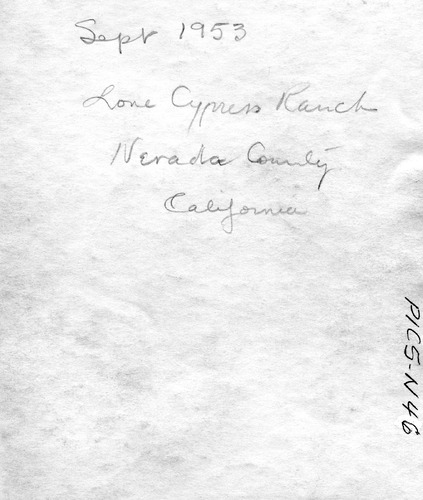 Sept 1953
Lone Cypress Ranch
Nevada County
California
PICS-N46